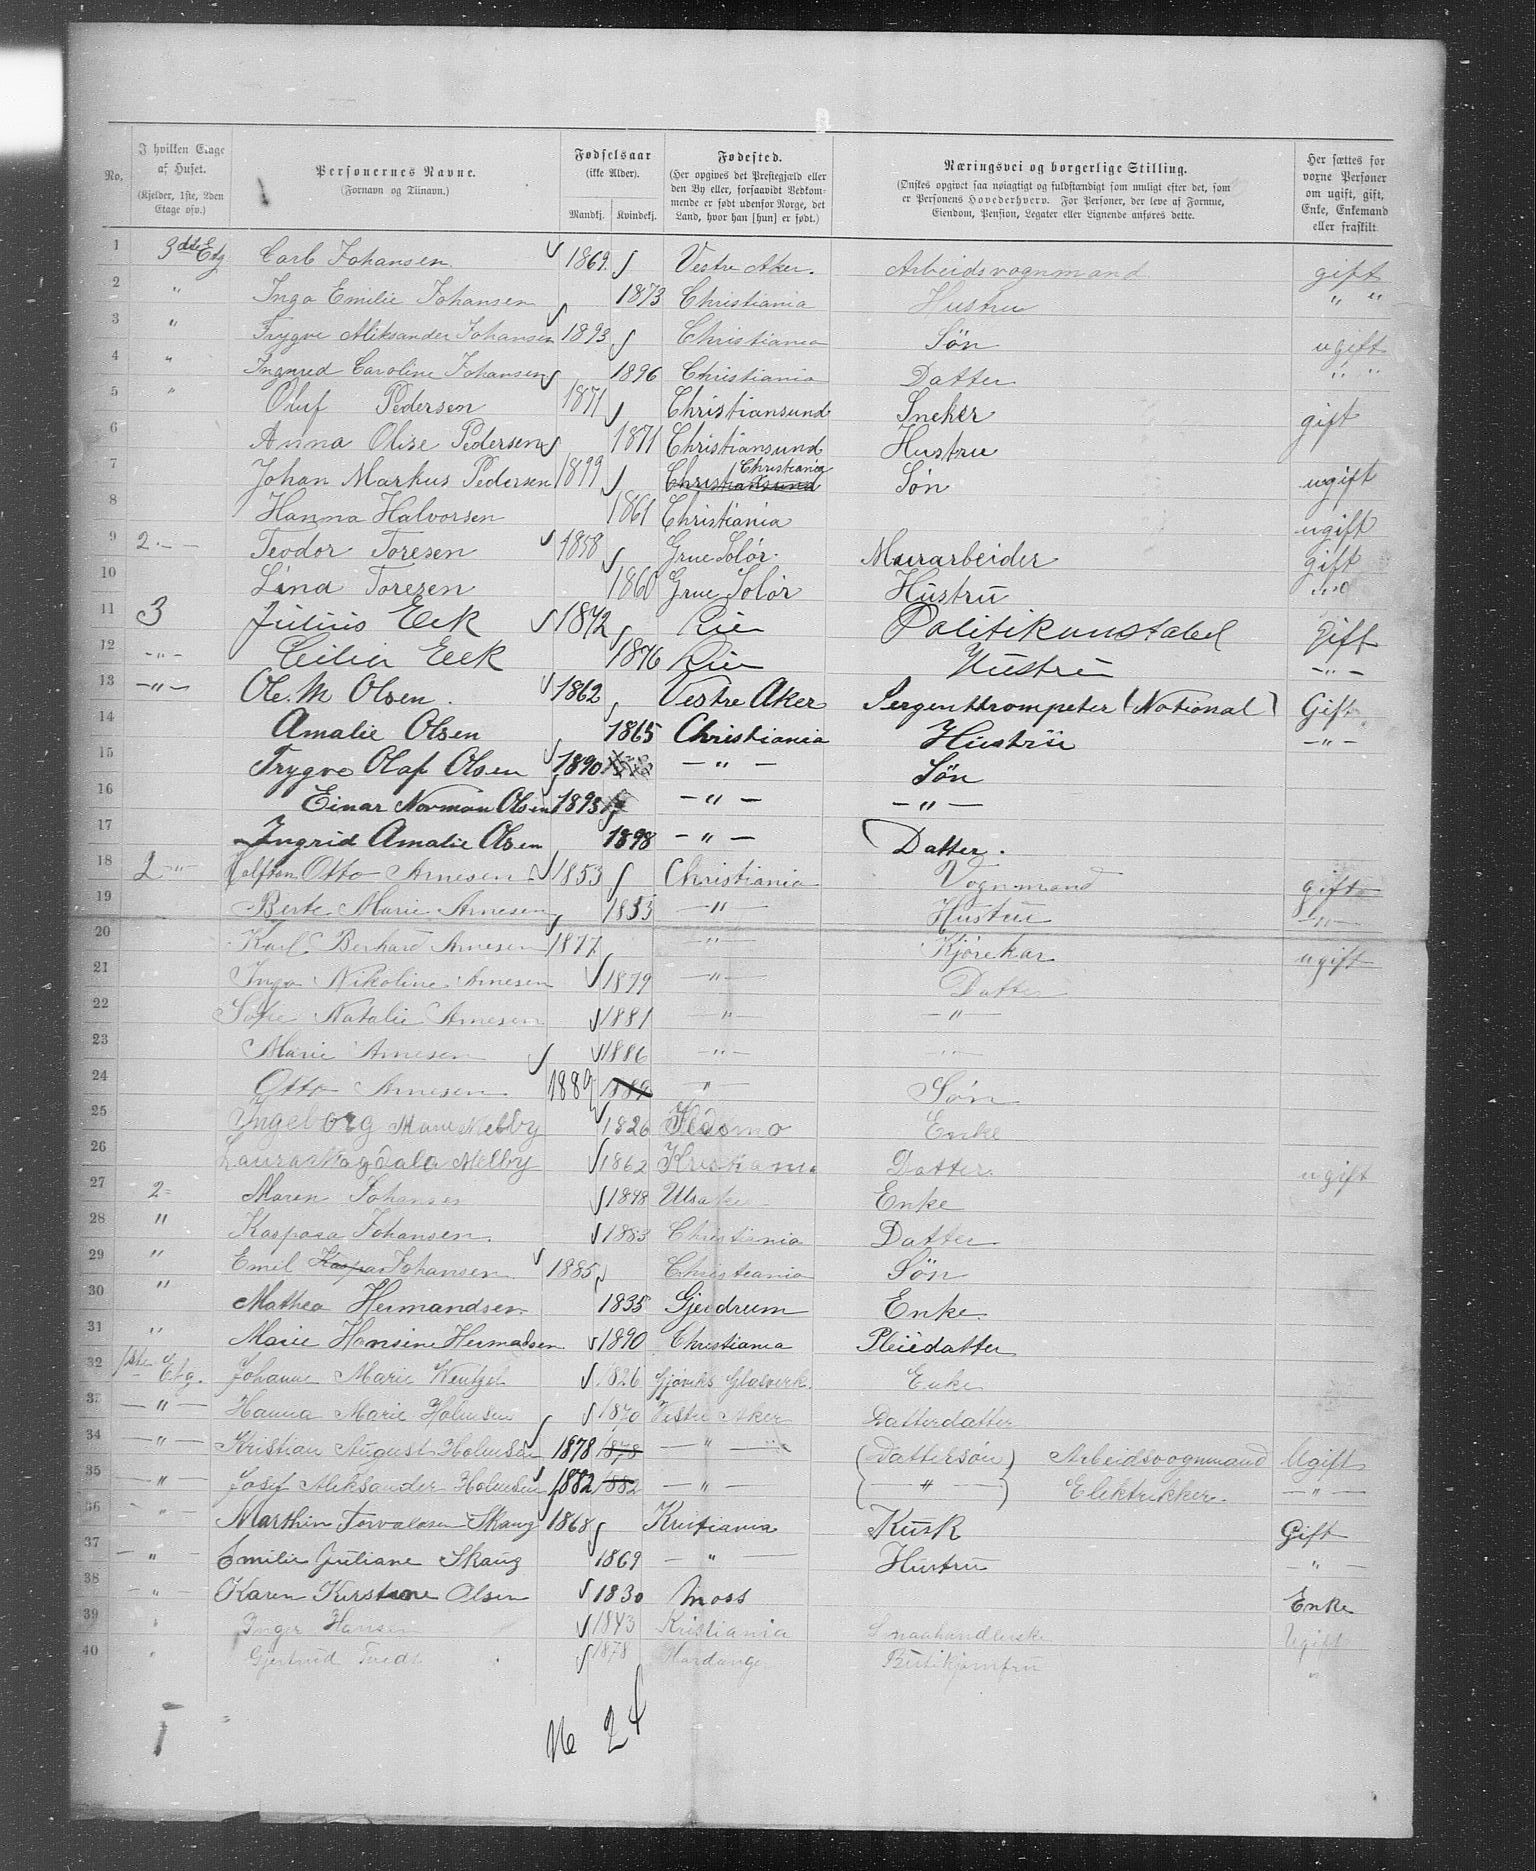 No. I hvilken Etage af Huset. (Kjelder, 1ste, 2den Etage osv.) Personernes Navne. (Fornavn og Tilnavn.) Fødselsaar (ikke Alder). Mandkj. Kvindekj. Fødested. (Her opgives det Prestegjæld eller den By eller, forsaavidt Vedkommende er født udenfor Norge, det Land, hvor han [hun] er født.) Næringsvei og borgerlige Stilling. (Ønskes opgivet saa nøiagtigt og fuldstændigt som muligt efter det, som er Personens Hovederhverv. For Personer, der leve af Formue, Eiendom, Pension, Legater eller Lignende anføres dette. Her sættes for voxne Personer om ugift, gift, Enke, Enkemand eller fraskilt.
1 3die Etg Carl Johansen 1869 Vestre Aker. Arbeidsvognmand gift
2 " Inga Emilie Johansen 1873 Christiania Hustru " "
3 " Trygve Aleksander Johansen 1893 Christiania Søn ugift
4 " Ingrid Caroline Johansen 1896 Christiania Datter " "
5 " Oluf Pedersen 1871 Christiansund Sneker gift
6 Anna Olise Pedersen 1871 Christiansund Hustru
7 Johan Markus Pedersen 1899 Christiansund Christiania Søn ugift
8 Hanna Halvorsen 1861 Christiania ugift
9 2 - - Teodor Toresen 1858 Grue Solør. Murarbeider gift
10 Lina Toresen 1860 Grue Solør Hustru
11 3 Julius Eek 1872 Rie Politikonstabel Gift
12 - " - Cecilia Eek 1876 Rie Hustru - " -
13 - " - Ole. M Olsen. 1862 Vestre Aker Sergenttrompeter (National) Gift
14 Amalie Olsen 1865 Christiania Hustru - " -
15 Trygve Olaf Olsen 1890 - " - Søn
16 Einar Norman Olsen 1893 - " - - " -
17 Ingrid Amalie Olsen 1898 - " - Datter.
18 2 - " - Halfdan Otto Arnesen 1853 Christiania Vognmand gift
19 Berte Marie Arnesen 1855 - " - Hustru - " -
20 Karl Berhard Arnesen 1877 - " - Kjørekar ugift
21 Inga Nikoline Arnesen 1879 - " - Datter
22 Sofie Natalie Arnesen 1881 - " - - " -
23 Marie Arnesen 1886 - " - - " -
24 Otto Arnesen 1889 1889 - " - Søn
25 Ingeborg Marie Melby 1826 Enke
26 Laura Magdala Melby 1862 Kristiania Datter ugift
27 2 - Maren Johansen 1848 Enke
28 " Kaspara Johansen. 1883 Christiania Datter
29 " Emil Kaspar Johansen 1885 Christiania Søn
30 " Mathea Hermandsen 1835 Gjerdrum Enke.
31 " Marie Hansine Hermadsen 1890 Christiania Pleiedatter
32 1ste Etg. Johanne Marie Wentzel 1826 Gjøviks Glasverk. Enke
33 - " - Hanna Marie Holmsen 1870 Vestre Aker Datterdatter
34 - " - Kristian August Holmsen 1878 1878 - " - (Dattersøn) Arbeidsvognmand Ugift
35 - " - Josef Aleksander Holmsen 1882 1882 - " - ( - " - ) Elektrikker. - " -
36 - " - Marthin Torvaldsen Skaug 1868 Kristiania Kusk Gift
37 - " - Emilie Juliane Skaug 1869 - " - Hustru - " -
38 - " - Karen Kirstine Olsen 1830 Moss Enke
39 " Inger Hansen 1843 Kristiania Smaahandlerske Ugift
40 " Gjertrud Tvedt 1878 Hardanger Butikjomfru "
No 24